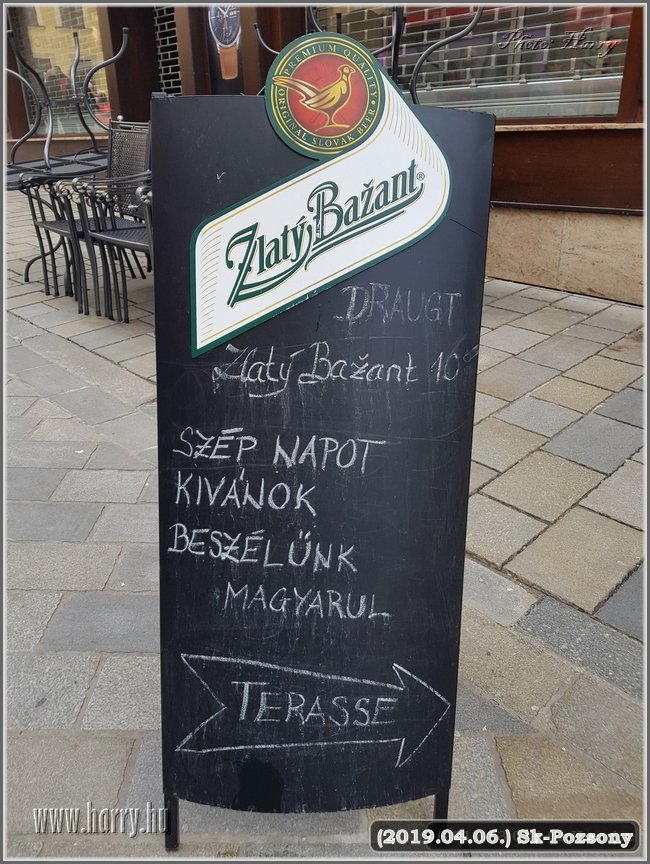 Photo: Harry
PREMIUM QUALITY
ORIGINAL SLOVAK BEER
Zlatý Bažant®
DRAUGT
Zlatý Bažant 10°
SZÉP NAPOT
KIVÁNOK
BESZÉLÜNK
MAGYARUL
TERASSE
www.harry.hu
(2019.04.06.) Sk-Pozsony